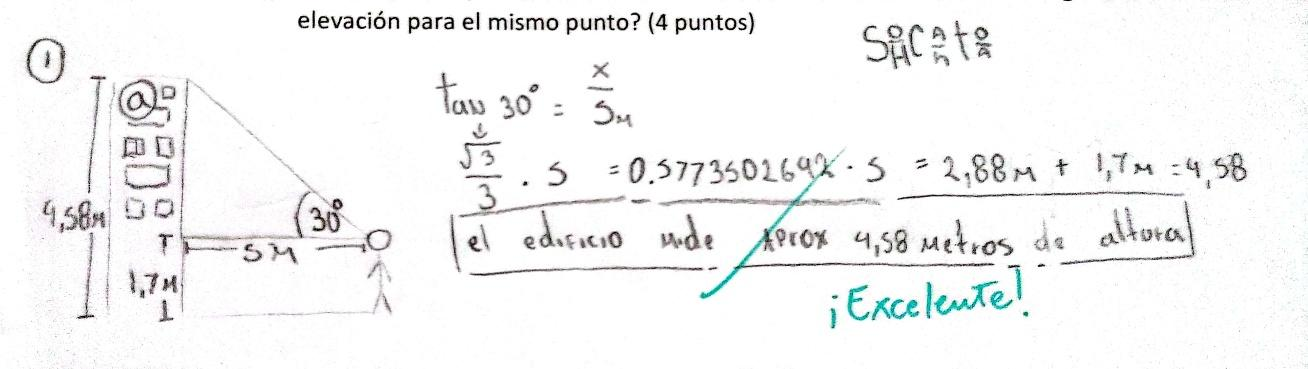 elevación para el mismo punto? (4 puntos)
1
SO/HCA/htO/A
a
tan 30° = x/5M
√3/3 . 5 = 0.5773502692 . 5 = 2,88M + 1,7M = 4,58
4,58M
30°
5M
1,7M
el edificio mide Aprox 4,58 Metros de altura
¡Excelente!